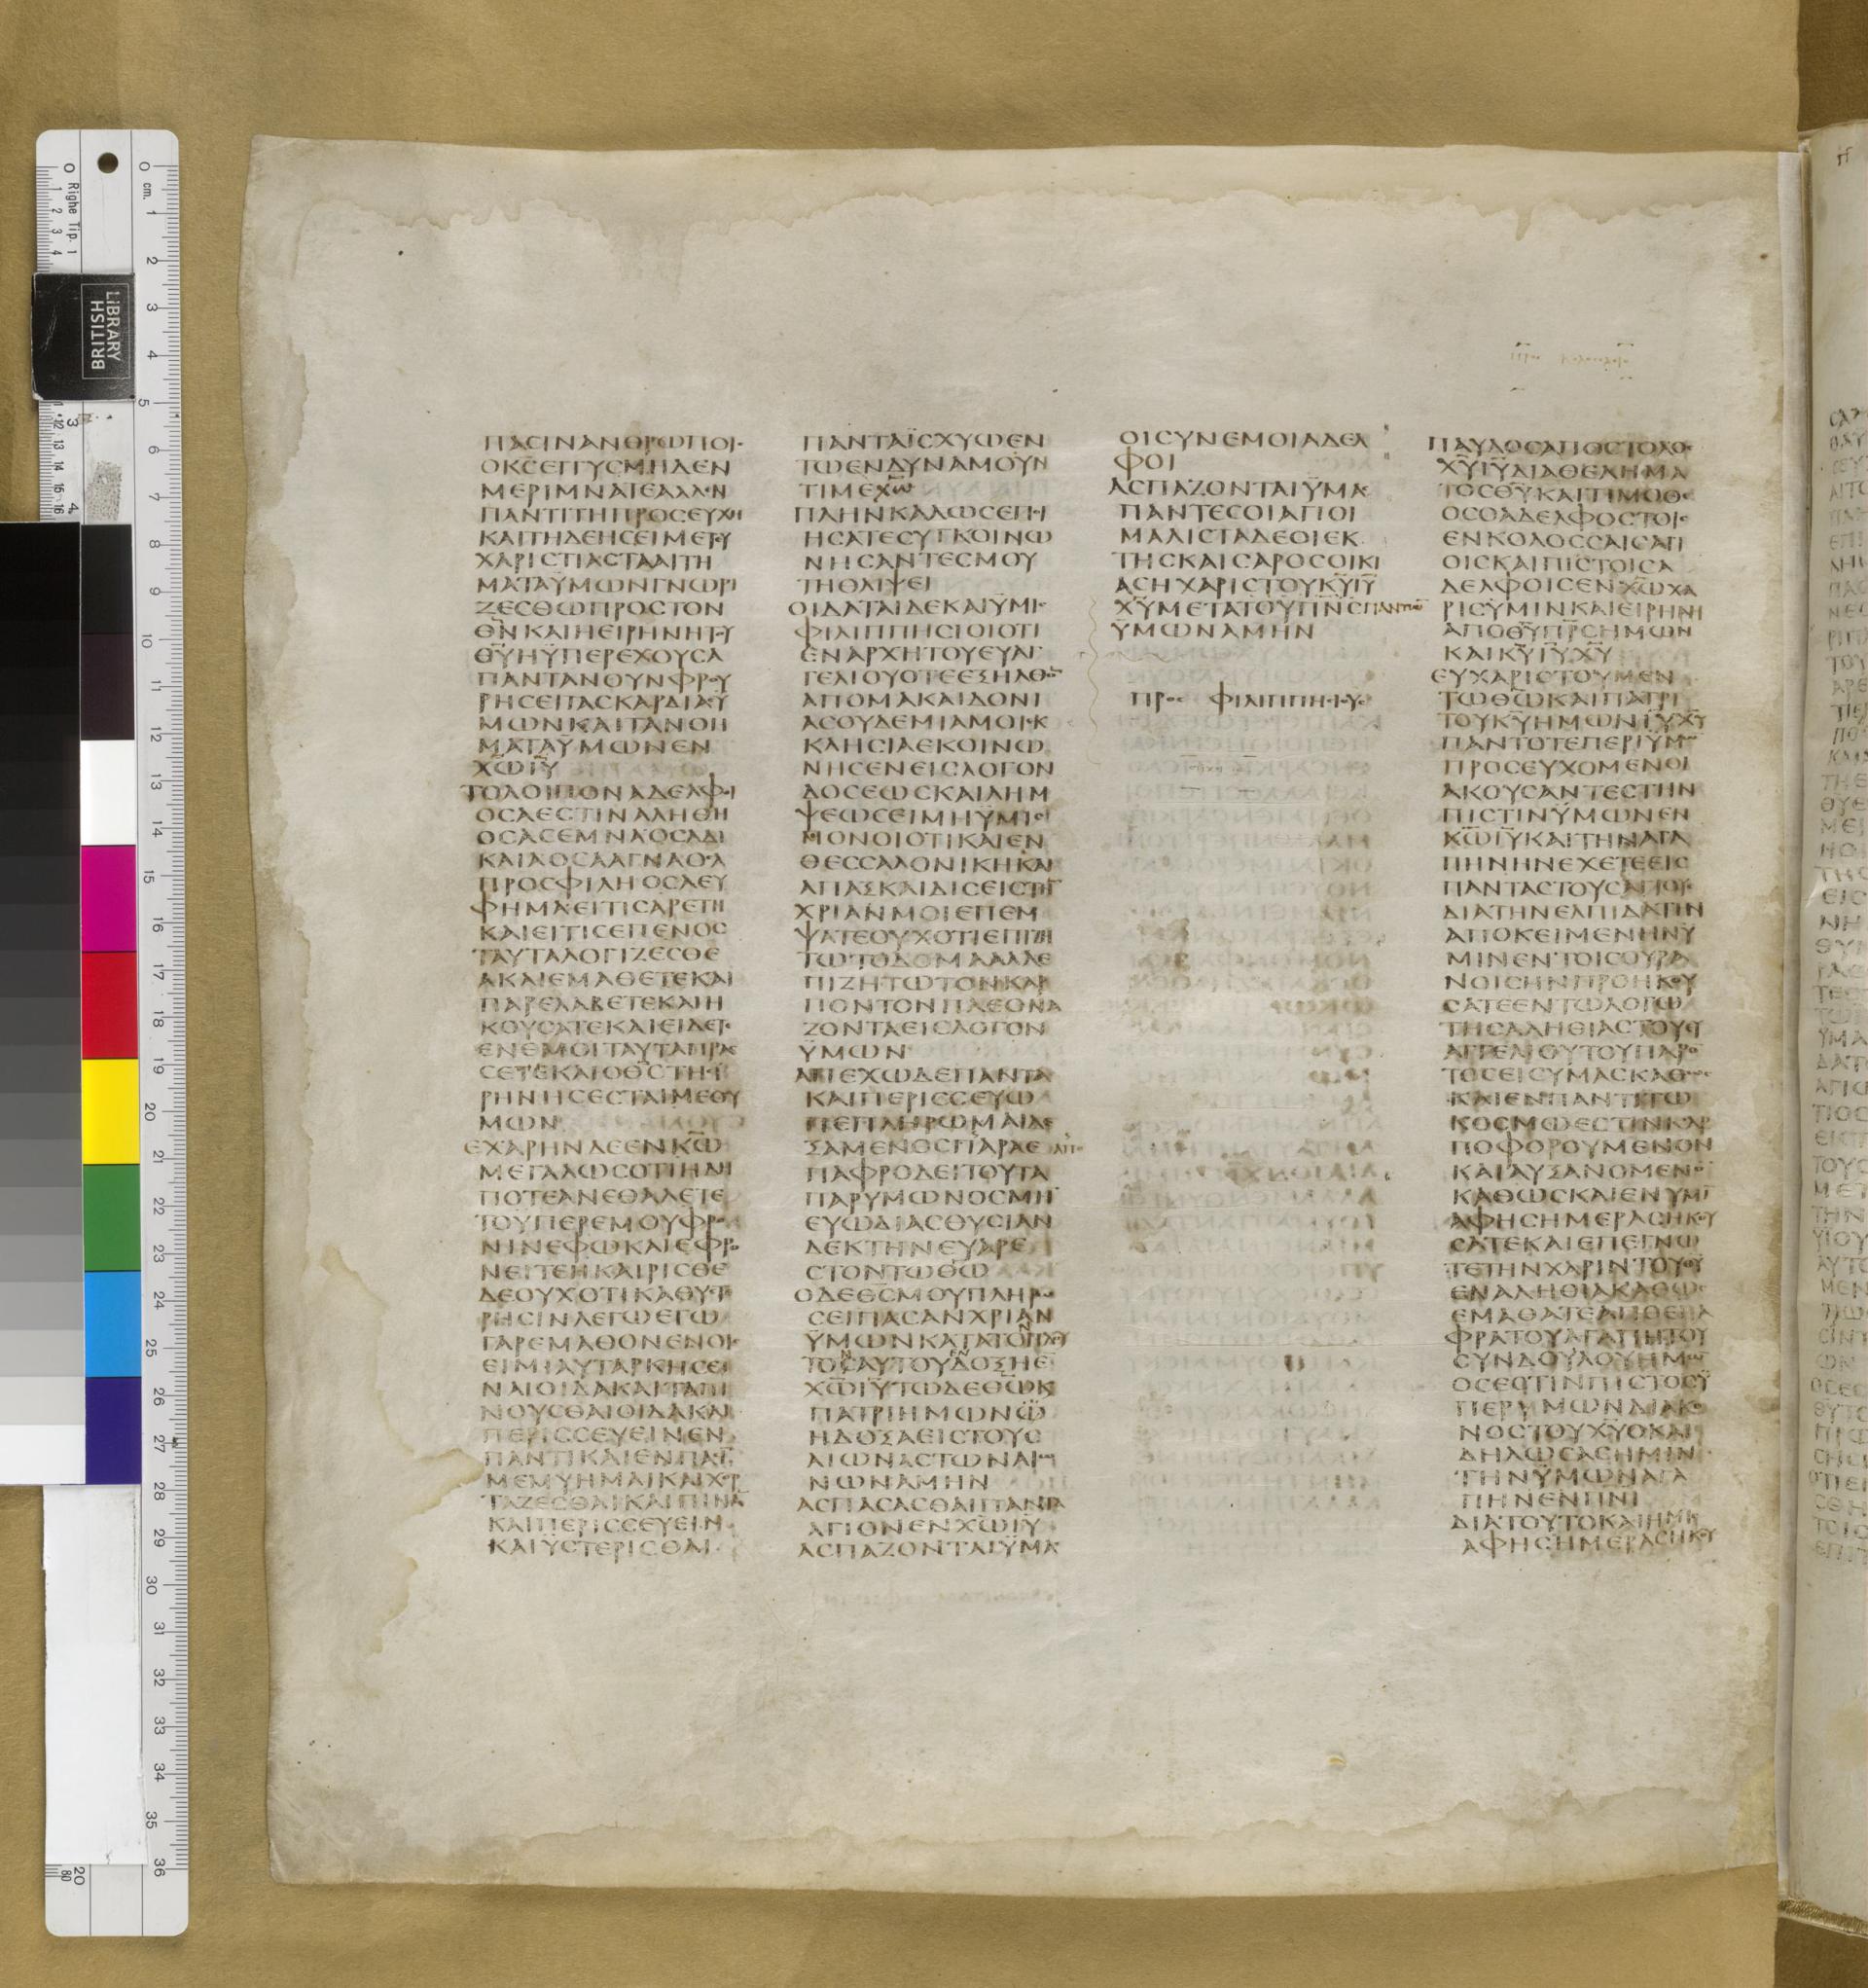 ΠΑΣΙΝΑΝΘΡΩΠΟΙϹ
ΟΚϹΕΓΓΥϹΜΗΔΕΝ
ΜΕΡΙΜΝΑΤΕΑΛΛΕΝ
ΠΑΝΤΙΤΗΠΡΟϹΕΥΧΗ
ΚΑΙΤΗΔΕΗϹΕΙΜΕΤΕΥ
ΧΑΡΙϹΤΙΑϹΤΑΑΙΤΗ
ΜΑΤΑΫΜΩΝΓΝΩΡΙ
ΖΕϹΘΩΠΡΟϹΤΟΝ
ΘΝΚΑΙΗΕΙΡΗΝΗΤΟΥ
ΘΥΗΫΠΕΡΕΧΟΥϹΑ
ΠΑΝΤΑΝΟΥΝΦΡΟΥ
ΡΗϹΕΙΤΑϹΚΑΡΔΙΑϹΫ
ΜΩΝΚΑΙΤΑΝΟΗ
ΜΑΤΑΫΜΩΝΕΝ
ΧΩΙΥ
ΤΟΛΟΙΠΟΝΑΔΕΛΦΟΙ
ΟϹΑΕϹΤΙΝΑΛΗΘΗ
ΟϹΑϹΕΜΝΑΟϹΑΔΙ
ΚΑΙΑΟϹΑΑΓΝΑΟϹΑ
ΠΡΟϹΦΙΛΗΟϹΑΕΥ
ΦΗΜΑΕΙΤΙϹΑΡΕΤΗ
ΚΑΙΕΙΤΙϹΕΠΕΝΟϹ
ΤΑΥΤΑΛΟΓΙΖΕϹΘΕ
ΑΚΑΙΕΜΑΘΕΤΕΚΑΙ
ΠΑΡΕΛΑΒΕΤΕΚΑΙΗ
ΚΟΥϹΑΤΕΚΑΙΕΙΔΕΤΕ
ΕΝΕΜΟΙΤΑΥΤΑΠΡΑϹ
ϹΕΤΕΚΑΙΟΘϹΤΗϹΙ
ΡΗΝΗϹΕϹΤΑΙΜΕΘΥ
ΜΩΝ
ΕΧΑΡΗΝΔΕΕΝΚΩ
ΜΕΓΑΛΩϹΟΤΙΗΔΗ
ΠΟΤΕΑΝΕΘΑΛΕΤΕ
ΤΟΥΠΕΡΕΜΟΥΦΡΟ
ΝΙΝΕΦΩΚΑΙΕΦΡΟ
ΝΕΙΤΕΗΚΑΙΡΙϹΘΕ
ΔΕΟΥΧΟΤΙΚΑΘΥϹΤΕ
ΡΗϹΙΝΛΕΓΩΕΓΩ
ΓΑΡΕΜΑΘΟΝΕΝΟΙϹ
ΕΙΜΙΑΥΤΑΡΚΗϹΕΙ
ΝΑΙΟΙΔΑΚΑΙΤΑΠΙ
ΝΟΥϹΘΑΙΟΙΔΑΚΑΙ
ΠΕΡΙϹϹΕΥΕΙΝΕΝ
ΠΑΝΤΙΚΑΙΕΝΠΑϹΙ
ΜΕΜΥΗΜΑΙΚΑΙΧΟΡ
ΤΑΖΕϹΘΑΙΚΑΙΠΙΝΑ
ΚΑΙΠΕΡΙϹϹΕΥΕΙΝ
ΚΑΙΫϹΤΕΡΙϹΘΑΙ
ΠΑΝΤΑΪϹΧΥΩΕΝ
ΤΩΕΝΔΥΝΑΜΟΥΝ
ΤΙΜΕΧΩ
ΠΛΗΝΚΑΛΩϹΕΠΟΙ
ΗϹΑΤΕϹΥΓΚΟΙΝΩ
ΝΗϹΑΝΤΕϹΜΟΥ
ΤΗΘΛΙΨΕΙ
ΟΙΔΑΤΑΙΔΕΚΑΙΫΜΙϹ
ΦΙΛΙΠΠΗϹΙΟΙΟΤΙ
ΕΝΑΡΧΗΤΟΥΕΥΑΓ
ΓΕΛΙΟΥΟΤΕΕΞΗΛΘΟΝ
ΑΠΟΜΑΚΑΙΔΟΝΙ
ΑϹΟΥΔΕΜΙΑΜΟΙΕΚ
ΚΛΗϹΙΑΕΚΟΙΝΩ
ΝΗϹΕΝΕΙϹΛΟΓΟΝ
ΔΟϹΕΩϹΚΑΙΛΗΜ
ΨΕΩϹΕΙΜΗΫΜΙϹ
ΜΟΝΟΙΟΤΙΚΑΙΕΝ
ΘΕϹϹΑΛΟΝΙΚΗΚΑΙ
ΑΠΑΞΚΑΙΔΙϹΕΙϹΤΗΝ
ΧΡΙΑΝΜΟΙΕΠΕΜ
ΨΑΤΕΟΥΧΟΤΙΕΠΙΖΗ
ΤΩΤΟΔΟΜΑΑΛΛΕ
ΠΙΖΗΤΩΤΟΝΚΑΡ
ΠΟΝΤΟΝΠΛΕΟΝΑ
ΖΟΝΤΑΕΙϹΛΟΓΟΝ
ΫΜΩΝ
ΑΠΕΧΩΔΕΠΑΝΤΑ
ΚΑΙΠΕΡΙϹϹΕΥΩ
ΠΕΠΛΗΡΩΜΑΙΔΕ
ΞΑΜΕΝΟϹΠΑΡΑΕ
ΠΑΦΡΟΔΕΙΤΟΥΤΑ
ΠΑΡΥΜΩΝΟϹΜΗ
ΕΥΩΔΙΑϹΘΥϹΙΑΝ
ΔΕΚΤΗΝΕΥΑΡΕ
ϹΤΟΝΤΩΘΩ
ΟΔΕΘϹΜΟΥΠΛΗΡΩ
ϹΕΙΠΑϹΑΝΧΡΙΑΝ
ΫΜΩΝΚΑΤΑΤΟΠΛΟΥ
ΤΟϹΑΥΤΟΥΔΟΞΗΕ
ΧΩΙΥΤΩΔΕΘΩΚ
ΠΑΤΡΙΗΜΩΝΩ
ΗΔΟΞΑΕΙϹΤΟΥϹ
ΑΙΩΝΑϹΤΩΝΑΙΩ
ΝΩΝΑΜΗΝ
ΑϹΠΑϹΑϹΘΑΙΠΑΝΤΑ
ΑΓΙΟΝΕΝΧΩΙΥ
ΑϹΠΑΖΟΝΤΑΙΫΜΑϹ
ΟΙϹΥΝΕΜΟΙΑΔΕΛ
ΦΟΙ
ΑϹΠΑΖΟΝΤΑΙΫΜΑϹ
ΠΑΝΤΕϹΟΙΑΓΙΟΙ
ΜΑΛΙϹΤΑΔΕΟΙΕΚ
ΤΗϹΚΑΙϹΑΡΟϹΟΙΚΙ
ΑϹΗΧΑΡΙϹΤΟΥΚΥΙΥ
ΧΥΜΕΤΑΤΟΥΠΝϹΠΑΝΤΩ
ΫΜΩΝΑΜΗΝ
ΠΡΟϹ ΦΙΛΙΠΠΗϹΙΟΥϹ
ΠΑΥΛΟϹΑΠΟϹΤΟΛΟϹ
ΧΥΙΥΔΙΑΘΕΛΗΜΑ
ΤΟϹΘΥΚΑΙΤΙΜΟΘΕ
ΟϹΟΑΔΕΛΦΟϹΤΟΙϹ
ΕΝΚΟΛΟϹϹΑΙϹΑΓΙ
ΟΙϹΚΑΙΠΙϹΤΟΙϹΑ
ΔΕΛΦΟΙϹΕΝΧΩΧΑ
ΡΙϹΥΜΙΝΚΑΙΕΙΡΗΝΗ
ΑΠΟΘΥΠΡϹΗΜΩΝ
ΚΑΙΚΥΙΥΧΥ
ΕΥΧΑΡΙϹΤΟΥΜΕΝ
ΤΩΘΩΚΑΙΠΑΤΡΙ
ΤΟΥΚΥΗΜΩΝΙΥΧΥ
ΠΑΝΤΟΤΕΠΕΡΙΫΜΩ
ΠΡΟϹΕΥΧΟΜΕΝΟΙ
ΑΚΟΥϹΑΝΤΕϹΤΗΝ
ΠΙϹΤΙΝΫΜΩΝΕΝ
ΧΩΙΥΚΑΙΤΗΝΑΓΑ
ΠΗΝΗΝΕΧΕΤΕΕΙϹ
ΠΑΝΤΑϹΤΟΥϹΑΓΙΟΥϹ
ΔΙΑΤΗΝΕΛΠΙΔΑΤΗΝ
ΑΠΟΚΕΙΜΕΝΗΝΫ
ΜΙΝΕΝΤΟΙϹΟΥΡΑ
ΝΟΙϹΗΝΠΡΟΗΚΟΥ
ϹΑΤΕΕΝΤΩΛΟΓΩ
ΤΗϹΑΛΗΘΙΑϹΤΟΥΕΥ
ΑΓΓΕΛΙΟΥΤΟΥΠΑΡΟ
ΤΟϹΕΙϹΥΜΑϹΚΑΘΩϹ
ΚΑΙΕΝΠΑΝΤΙΤΩ
ΚΟϹΜΩΕϹΤΙΝΚΑΡ
ΠΟΦΟΡΟΥΜΕΝΟΝ
ΚΑΙΑΥΞΑΝΟΜΕΝΟ
ΚΑΘΩϹΚΑΙΕΝΥΜΙ
ΑΦΗϹΗΜΕΡΑϹΗΚΟΥ
ϹΑΤΕΚΑΙΕΠΕΓΝΩ
ΤΕΤΗΝΧΑΡΙΝΤΟΥΘΥ
ΕΝΑΛΗΘΙΑΚΑΘΩϹ
ΕΜΑΘΑΤΕΑΠΟΕΠΑ
ΦΡΑΤΟΥΑΓΑΠΗΤΟΥ
ϹΥΝΔΟΥΛΟΥΗΜΩ
ΟϹΕϹΤΙΝΠΙϹΤΟϹΫ
ΠΕΡΥΜΩΝΔΙΑΚΟ
ΝΟϹΤΟΥΧΥΟΚΑΙ
ΔΗΛΩϹΑϹΗΜΙΝ
ΤΗΝΫΜΩΝΑΓΑ
ΠΗΝΕΝΠΝΙ
ΔΙΑΤΟΥΤΟΚΑΙΗΜΙϹ
ΑΦΗϹΗΜΕΡΑϹΗΚΟΥ